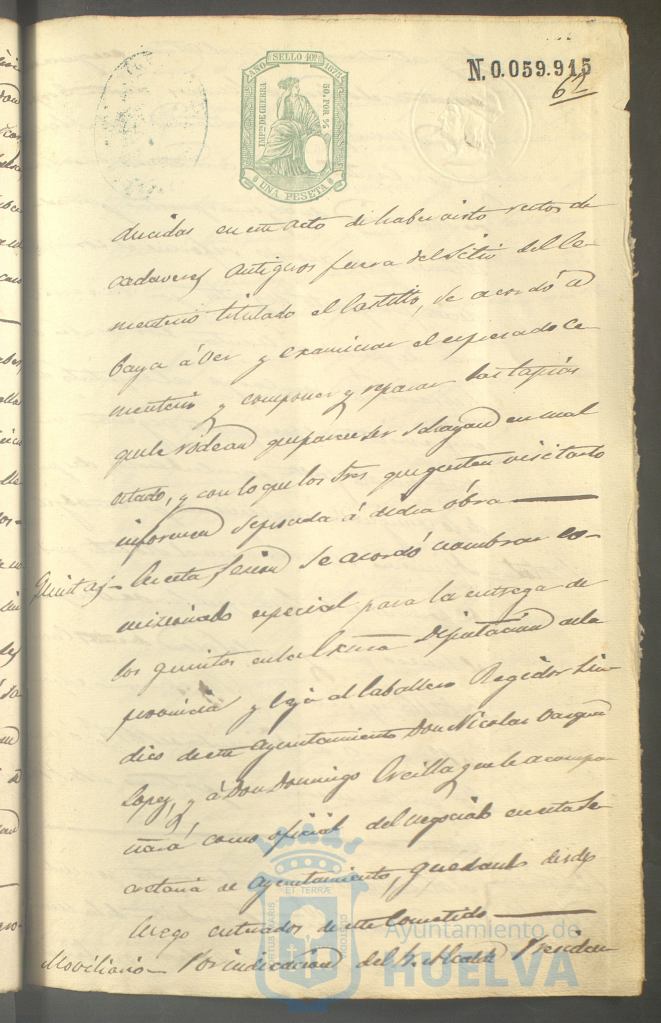 SELLO 10º
AÑO 1875
IMPto DE GUERRA
50 POR %
UNA PESETA
N. 0.059.915
62
ducidas en este acto de haber visto restos de
cadaveres antiguos fuera del sitio del Ce-
menterio titulado el Castillo, se acordó
baya á ver y examinar el espresado Ce
menterio y componer y reparar las tapias
que le rodean que parece ser se hayan en mal
estado, y con lo que los tres que gusten visitarlo
informen se proceda á dicha obra
Quintas En esta sesion se acordó nombrar co-
misionado especial para la entrega de
los quintos en la Exma Diputación de la
provincia y lo ... al Caballero Regidor Sin-
dico de este Ayuntamiento Don Nicolas Vazquez
Lopez, y á Don Domingo Arcilla que le acompa-
ñará como oficial del negociado en esta Se
cretaria de Ayuntamiento, quedando desde
luego enterados de este cometido
Moviliario Por indicacion del Sr. Alcalde Presiden
PORTUS MARIS
ET TERRÆ
CUSTODIA
Ayuntamiento de
HUELVA